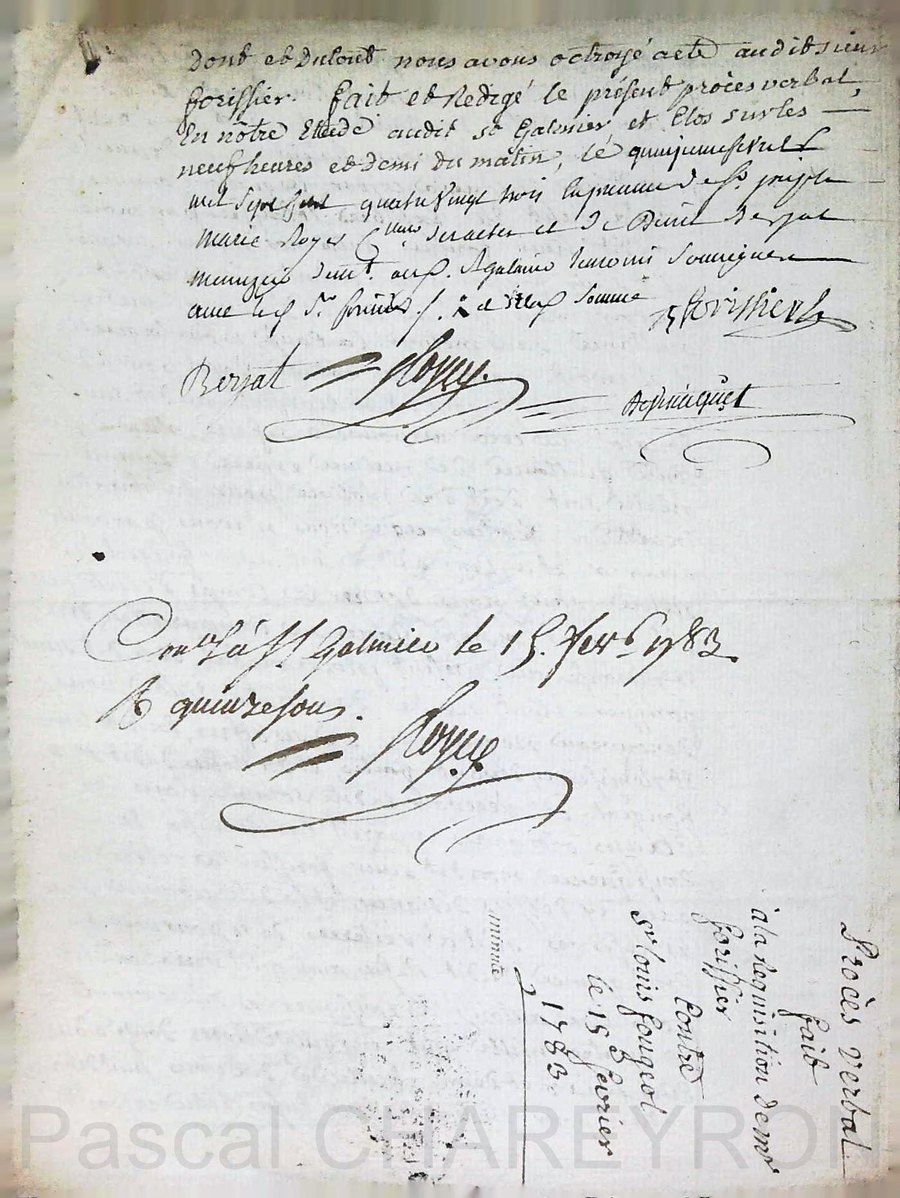 Dont et du tout nous avons octroyé acte audit sieur
forissier. fait et Redigé le présent procès verbal,
En nôtre Etude audit St Galmier, et Clos sur les
neuf heures et demi du matin, le quinze fevrier
mil sept cent quatre vingt trois En presence de Sr joseph
Marie Royer et de Benoit Berjat
St Galmier temoins Soussignés
avec led. Sr forissier
forissier
Berjat Royer
Con.lé à St Galmier le 15. fevr. 1783.
R quinze sous.
Royer
Procès Verbal
fait
à la Requisition de mr
forissier
Contre
Sr louis fougerol
le 15 fevrier
1783
minute
Pascal CHAREYRON